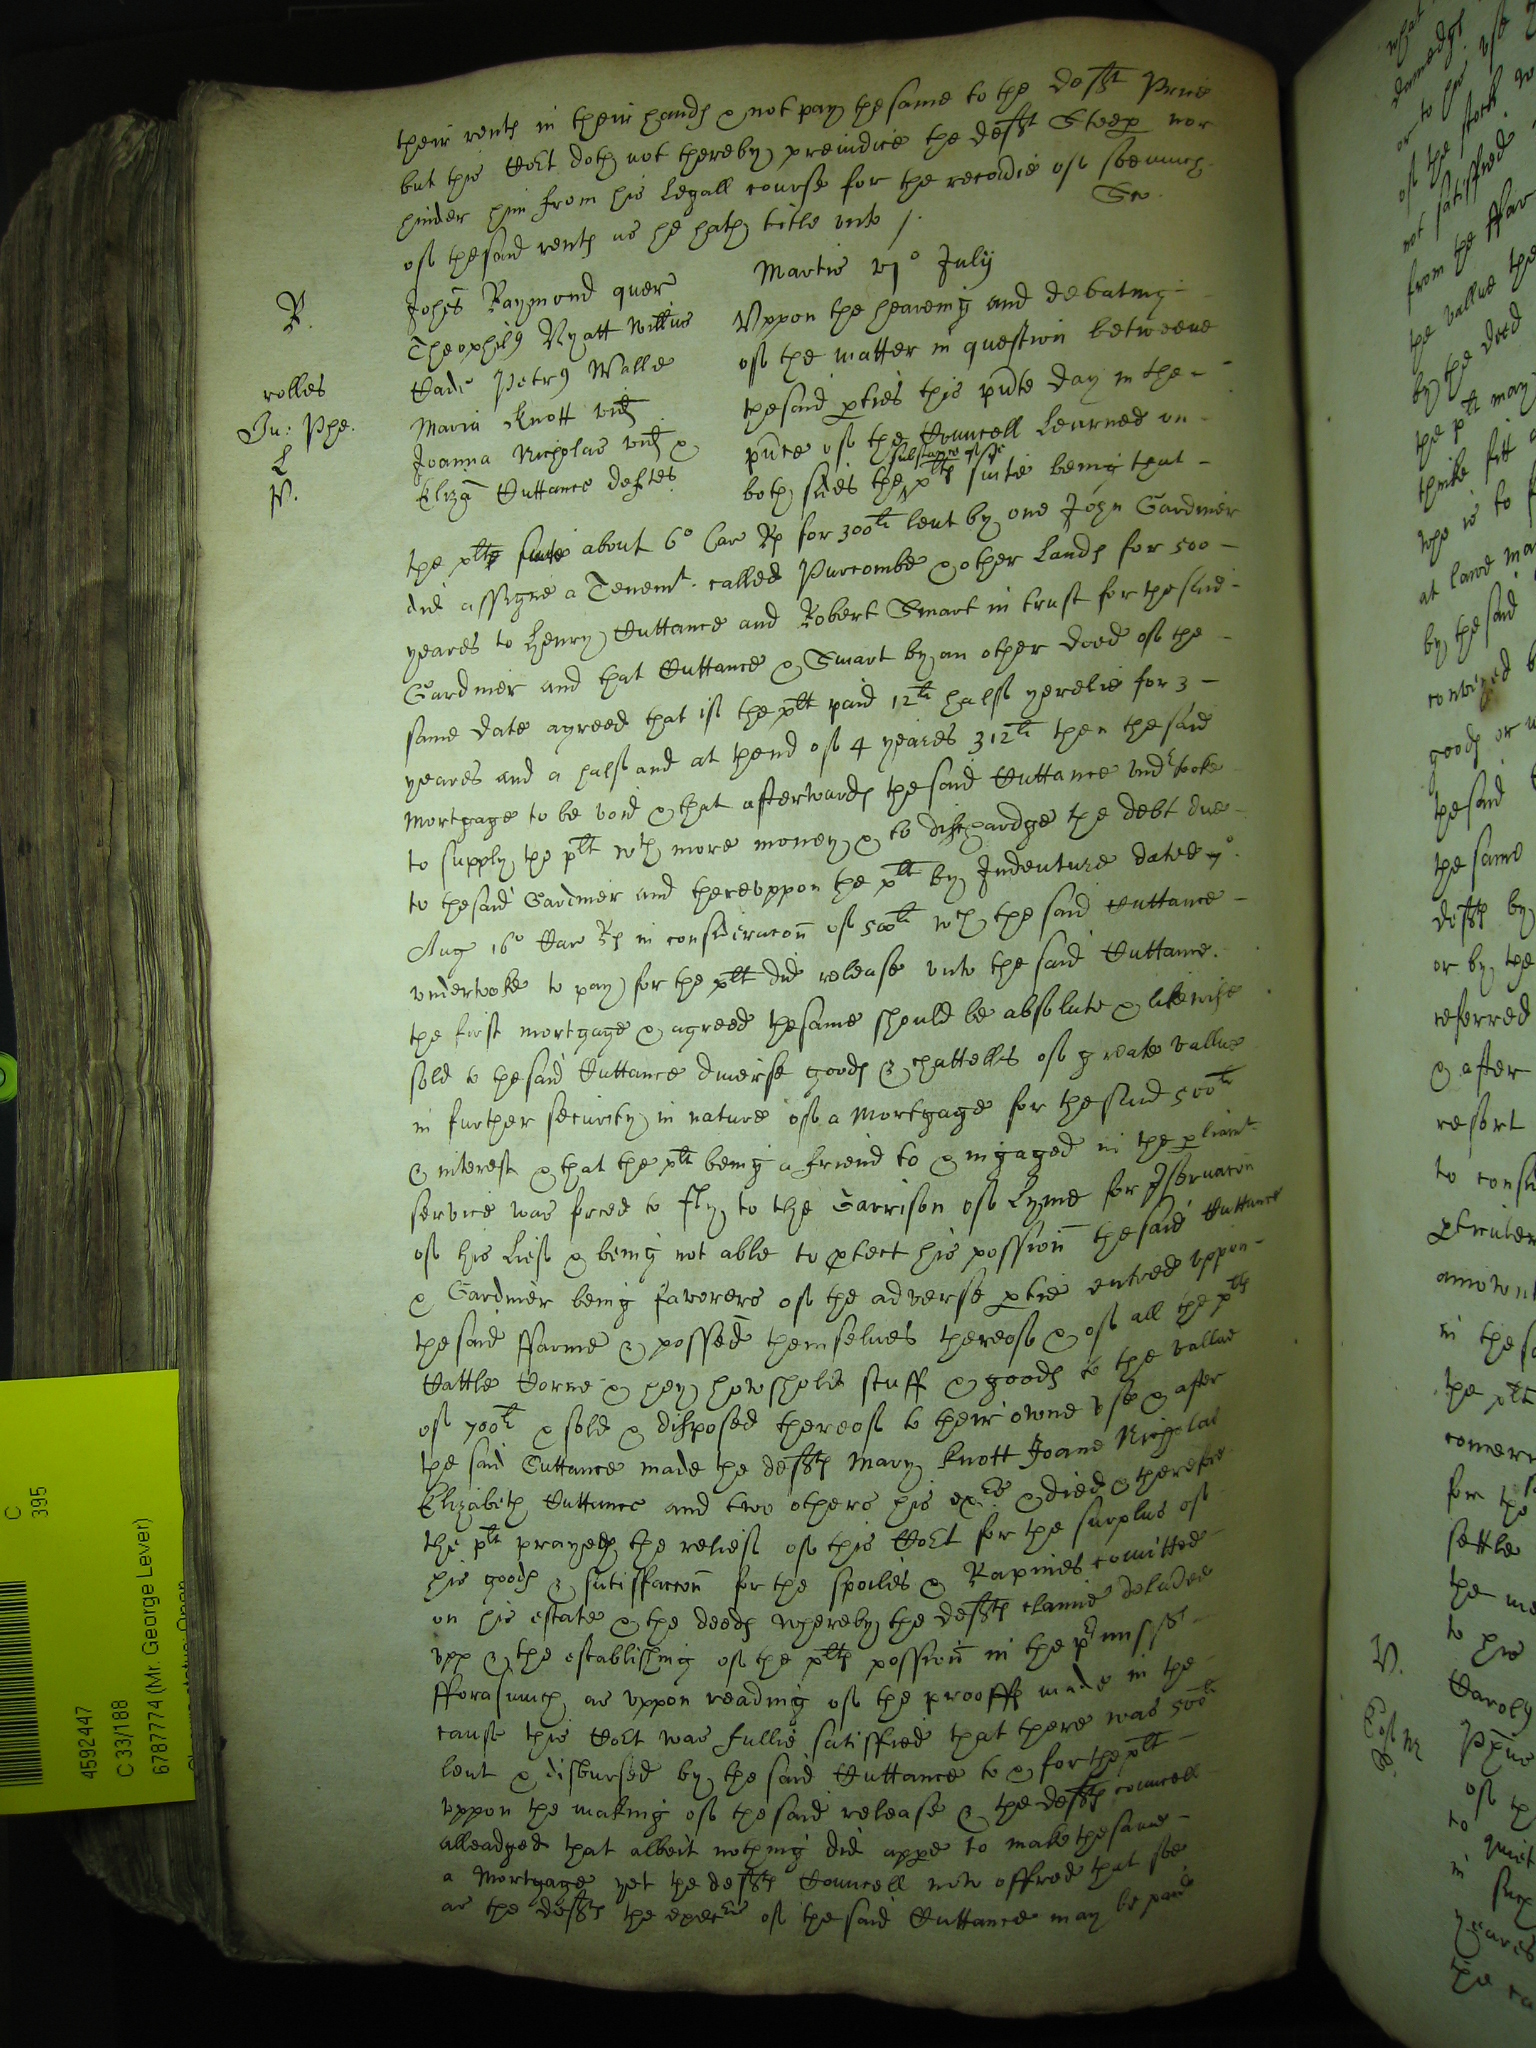 their rents in their hands & not pay the same to the deft Prine
but this Cort doth not thereby preiudice the deft Steep nor
hinder him from his Legall course for the recoūie of soe much
of the said rents as he hath title unto /.
Martis vj° July
R.
Johēs Raymond quer
Theophilus Wyatt Willūs
Cade Petrus Walle
Maria Knott vid
Joanna Nicholas vid &
Eliza Cuttance deftes
rolles
Ju: Phe.
L
N.
Uppon the heareing and debateing
of the matter in question betweene
the said pties this pñte day in the
pñce of the Councell Learned on
both sides the substance of the plts suite being that
the plt about 6° Car Rs for 300li lent by one John Gardiner
did assigne a Tenemt. called Purcombe & other Lands for 500
yeares to Henry Cuttance and Robert Smart in trust for the said
Gardiner and that Cuttance & Smart by an other deed of the
same date agreed that if the plt paid 12li halfe yerelie for 3
yeares and a halfe and at thend of 4 yeares 312li then the said
Mortgage to be void & that afterwards the said Cuttance undrtooke
to supply the plt wth more money & to dischardge the debt due
to the said Gardiner and thereuppon the plt by Indenture dated 7°
Aug 16° Car Rs in consideracon of 500li wch the said Cuttance
undertooke to pay for the plt did release unto the said Cuttance
the first mortgage & agreed the same should be absolute & likewise
sold to the said Cuttance diuerse goods & chattells of greate vallue
in further security in nature of a Mortgage for the said 500li
& interest & that the plt being a friend to & ingaged in the pliamt
service was forced to fly to the Garrison of Lyme for pservacon
of his Life & being not able to ptect his possion the said Cuttance
& Gardiner being favorers of the adverse ptie entred uppon
the said ffarme & possed themselves thereof & of all the plts
Cattle Corne & hey howshold stuff & goods to the vallue
of 700li & sold & disposed thereof to their owne use & after
the said Cuttance made the defts Mary Knott Joane Nicholas
Elizabeth Cuttance and two others his exrs & died & therefore
the plt prayeth the releif of this Cort for the surplus of
his goods & satisfaccon for the spoiles & Rapines comitted
on his estate & the deeds whereby the defts claime deliūed
upp & the establishing of the plts possion in the pmisses
fforasmuch as uppon reading of the prooffs made in the
cause this Cort was fullie satisfied that there was 500li
lent & disbursed by the said Cuttance to & for the plt
uppon the making of the said release & the defts councell
alleadged that albeit nothing did appe to make the same
a Mortgage yet the defts Councell now offred that soe
as the defts the execrs of the said Cuttance may be paid
C
395
4592447
C 33/188
6787774 (Mr. George Lever)